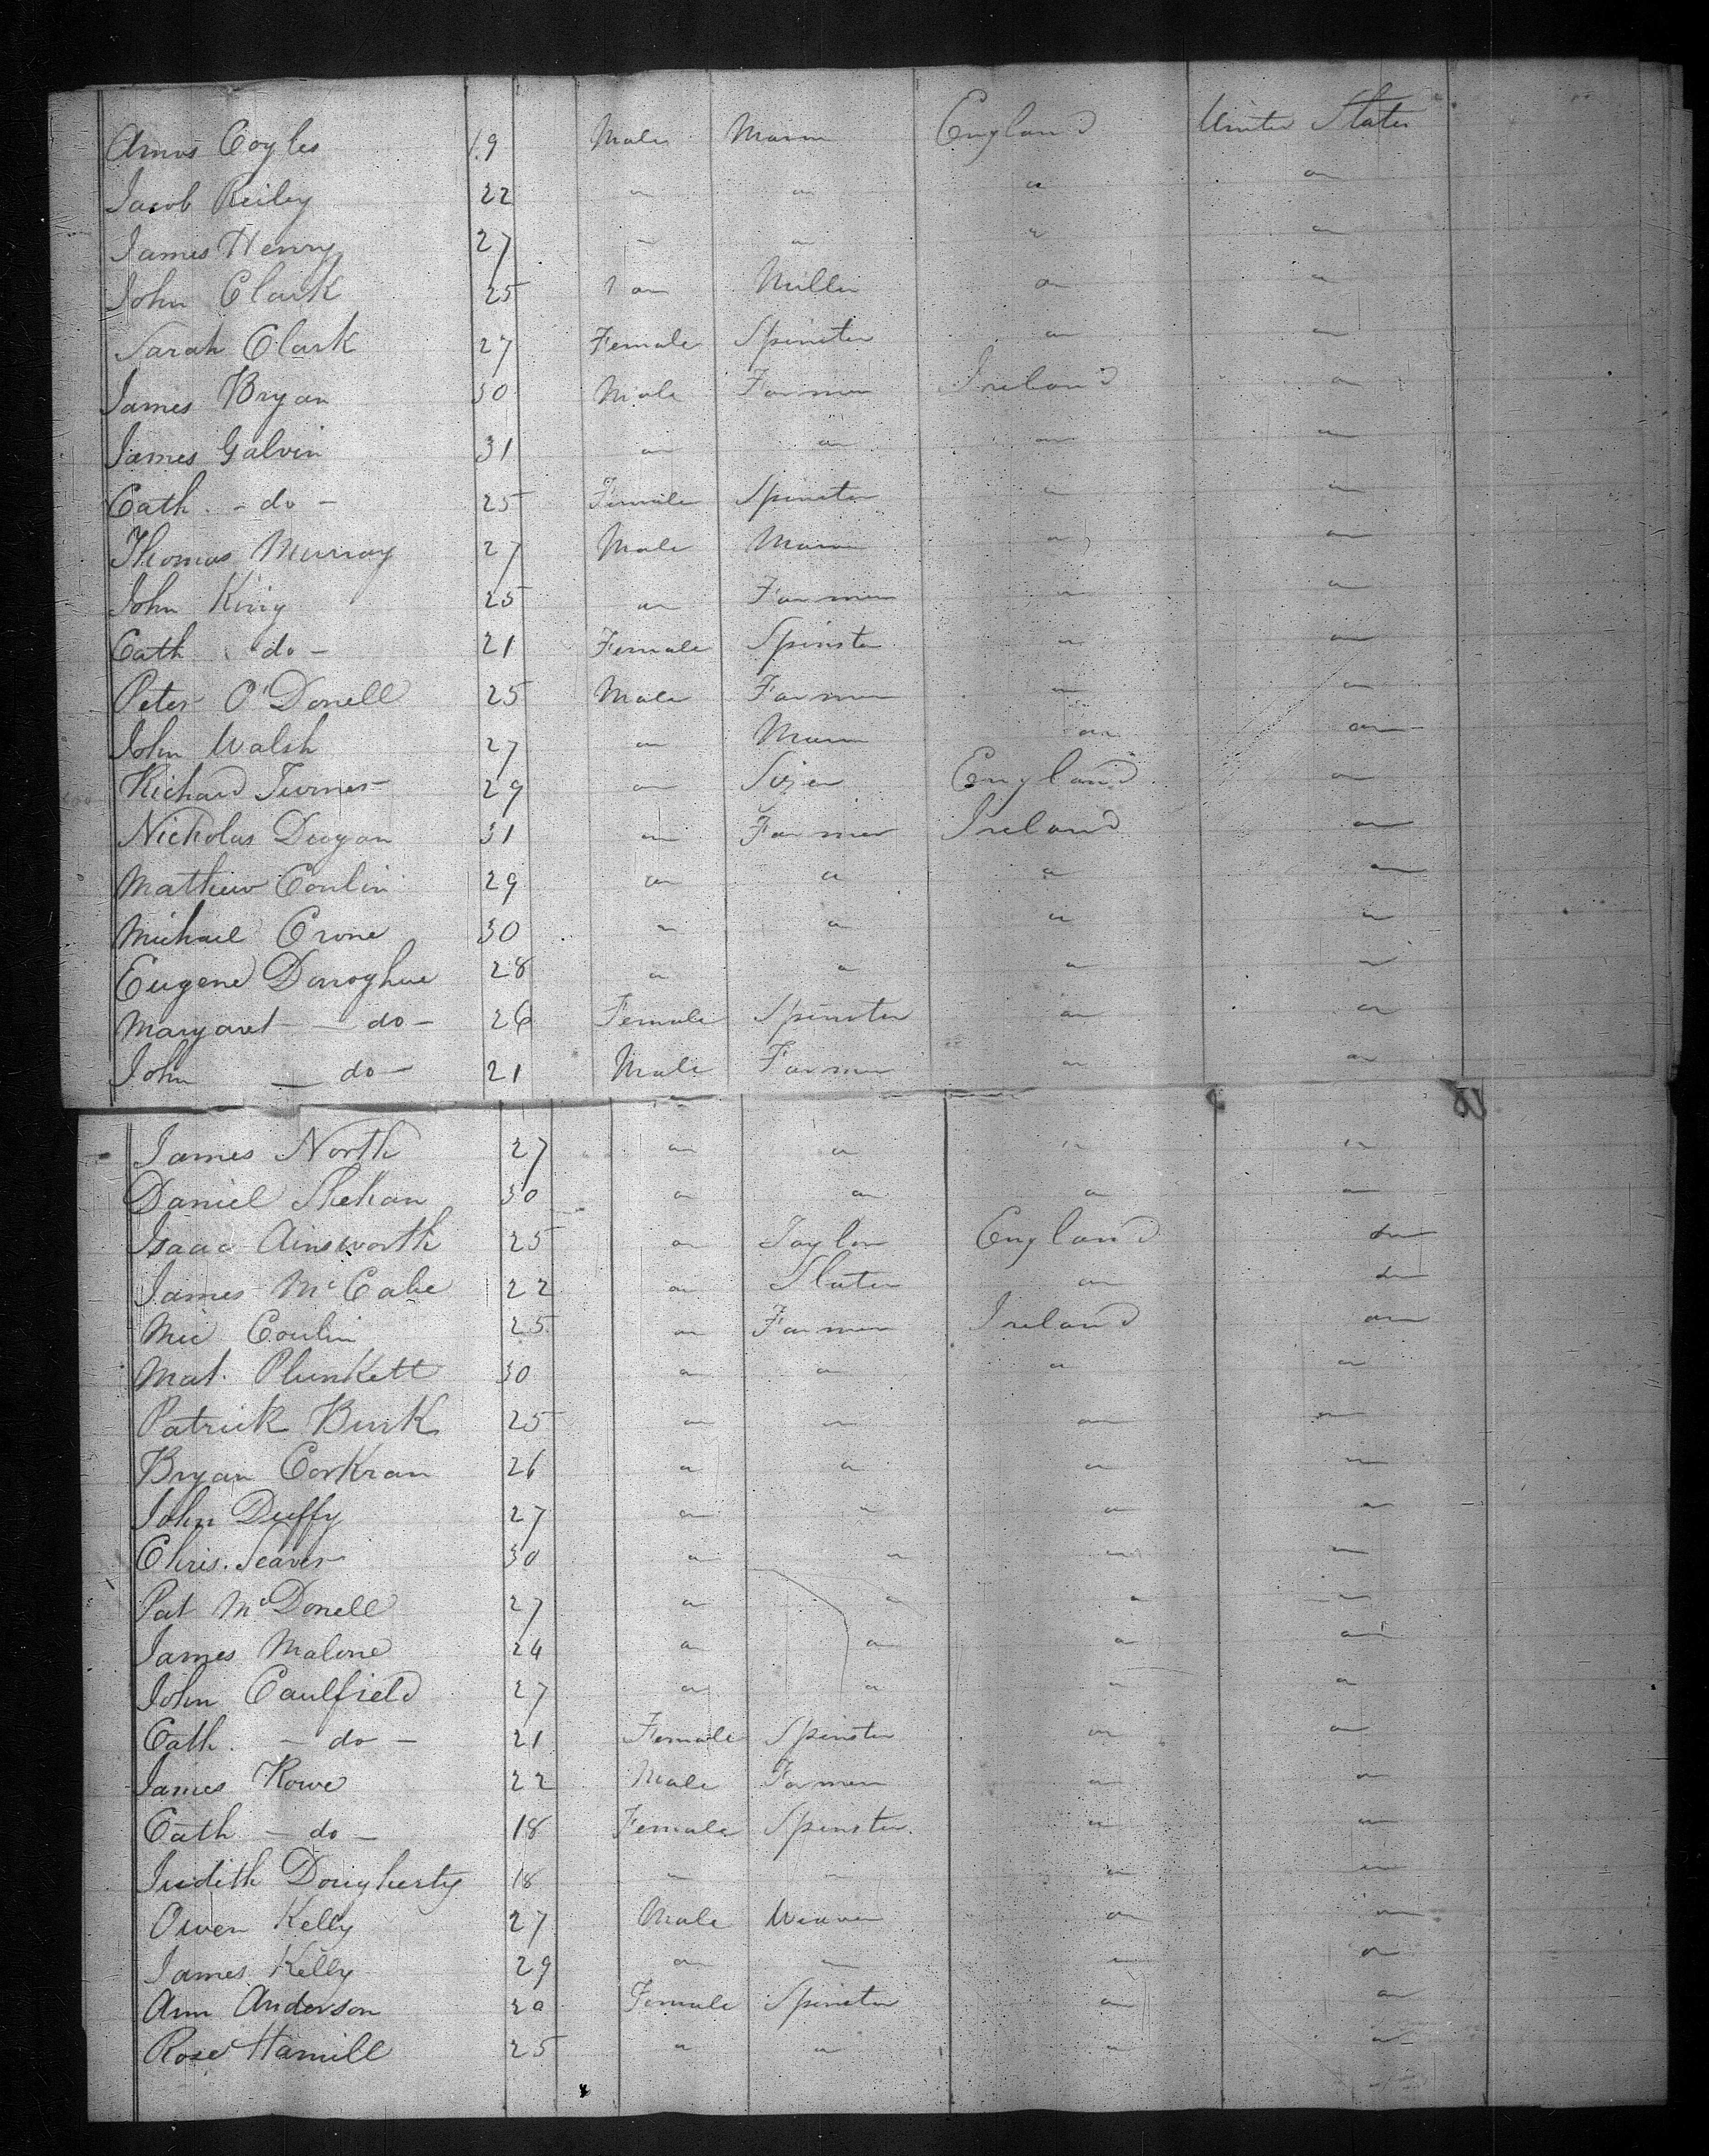 Amos Coyles 19 Male Mason England United States
Jacob Reiley 22 " " " "
James Henry 27 " " " "
John Clark 25 " Miller " "
Sarah Clark 27 Female Spinster " "
James Bryan 30 Male Farmer Ireland "
James Galvin 31 " " " "
Cath. - do - 25 Female Spinster " "
Thomas Murray 27 Male Mason " "
John King 25 " Farmer " "
Cath. do - 21 Female Spinster " "
Peter O'Donell 25 Male Farmer " "
John Walsh 27 " Mason " "
Richard Turner 29 " England "
Nicholas Deegan 31 " Farmer Ireland "
Mathew Conlin 29 " " " "
Michael Crone 30 " " " "
Eugene Donoghue 28 " " " "
Margaret - do - 26 Female Spinster " "
John - do - 21 Male Farmer " "
James North 27 " " " "
Daniel Shehan 30 " " " "
Isaac Ainsworth 25 " Taylor England "
James McCabe 22 " Slater " "
Mic Conlin 25 " Farmer Ireland "
Mat. Plunkett 30 " " " "
Patrick Burk 25 " " " "
Bryan Corkran 26 " " " "
John Duffy 27 " " " "
Chris. Seaver 30 " " " "
Pat McDonell 27 " " " "
James Malone 24 " " " "
John Caulfield 27 " " " "
Cath. - do - 21 Female Spinster " "
James Rowe 22 Male Farmer " "
Cath - do - 18 Female Spinster " "
Judith Dougherty 18 " " " "
Owen Kelly 27 Male Weaver " "
James Kelly 29 " " " "
Ann Anderson 20 Female Spinster " "
Rose Hamill 25 " " " "